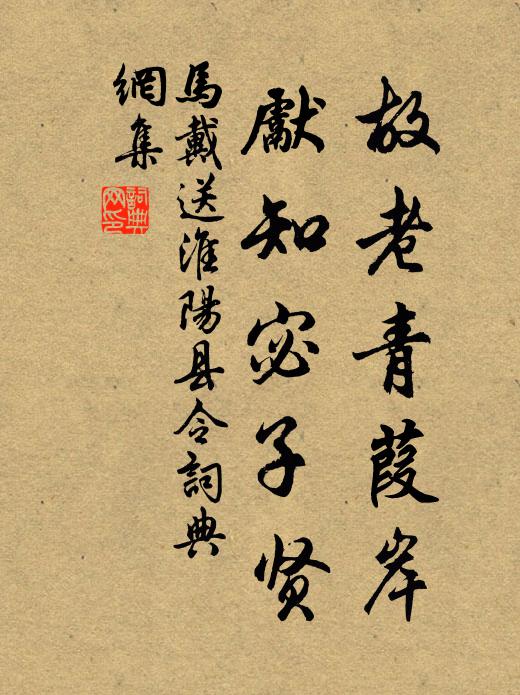 故老青葭岸
獻知宓子贤
馬戴送淮陽县令詞典
網集
詞典
网印